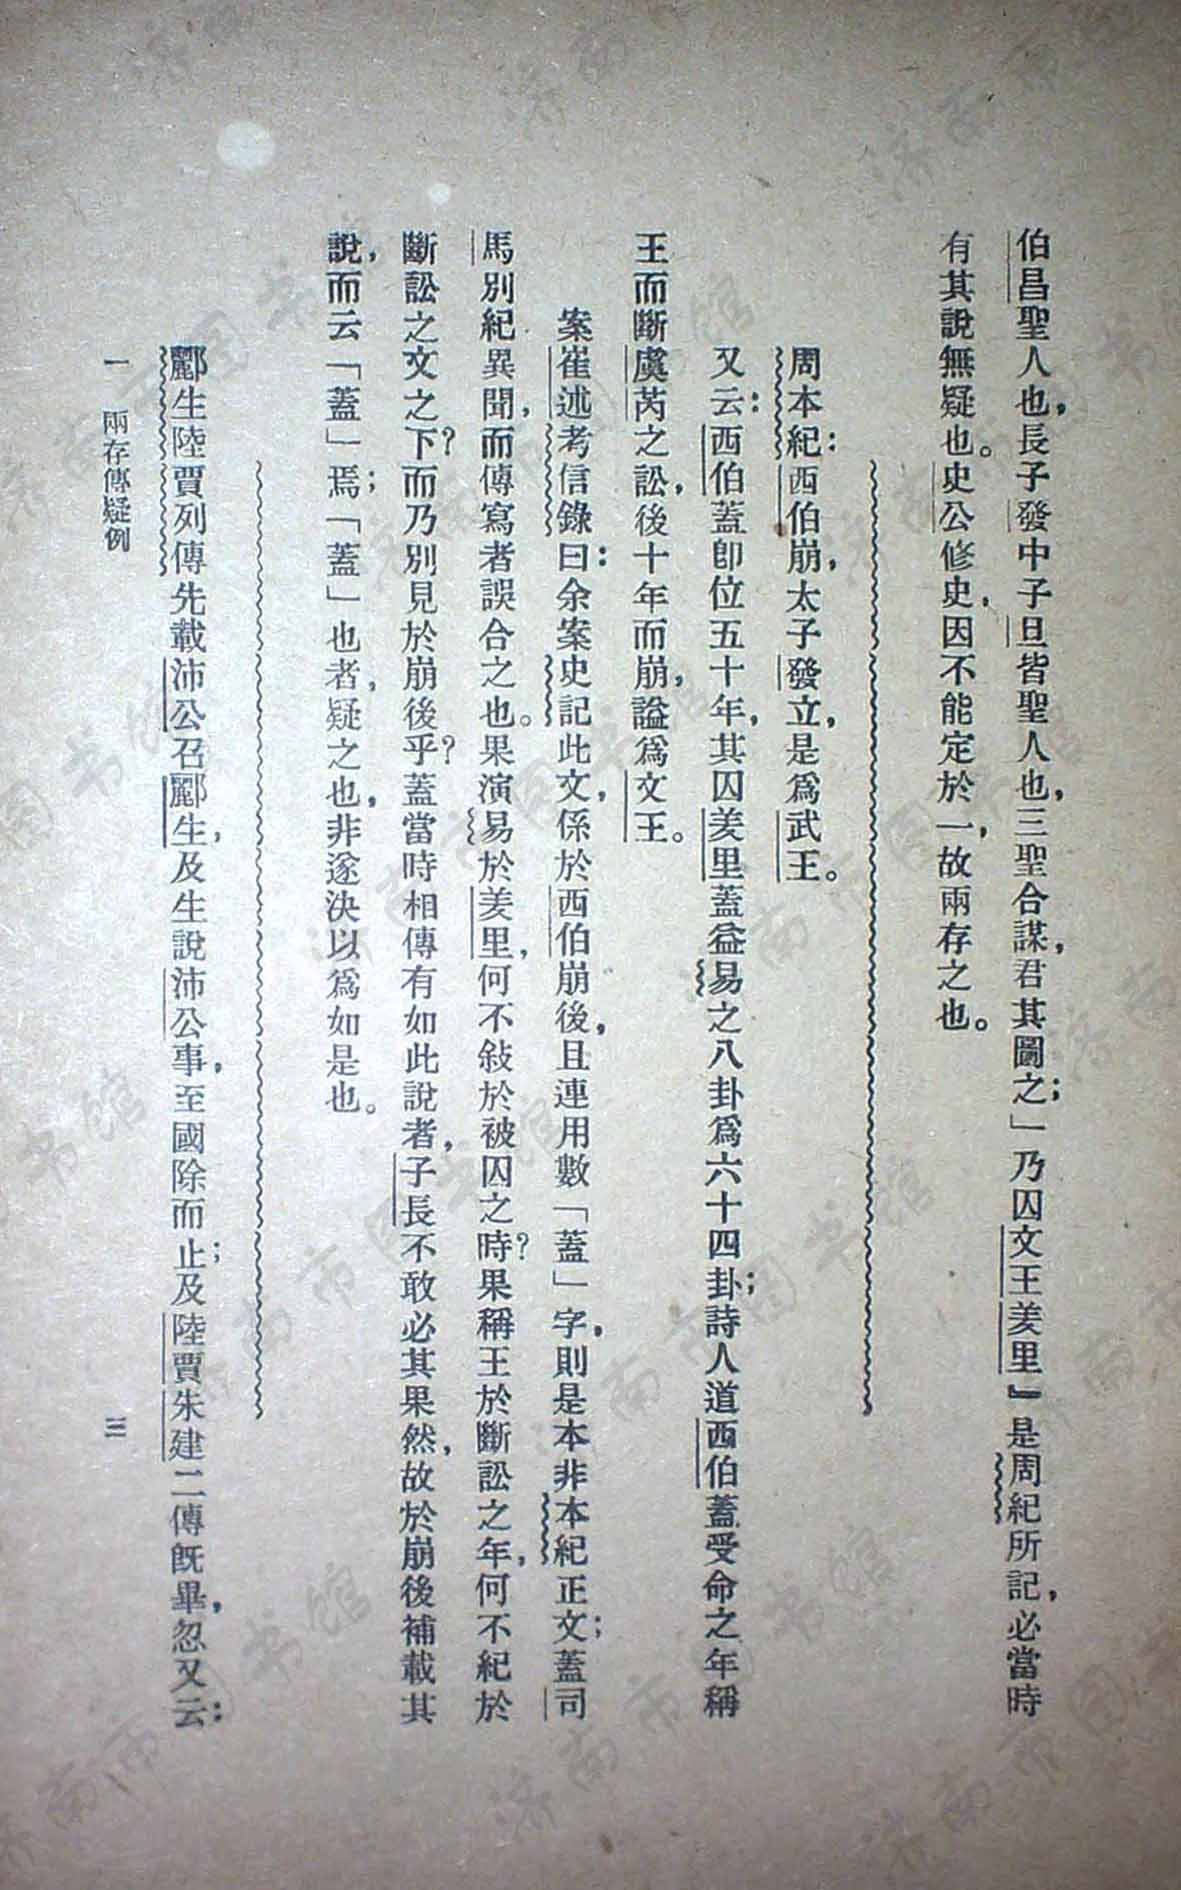 伯昌聖人也，長子發中子旦皆聖人也，三聖合謀，君其圖之；」乃囚文王羑里』是周紀所記，必當時
有其說無疑也。史公修史，因不能定於一，故兩存之也。
周本紀：西伯崩，太子發立，是爲武王。
又云：西伯蓋卽位五十年，其囚羑里蓋益易之八卦爲六十四卦；詩人道西伯蓋受命之年稱
王而斷虞芮之訟，後十年而崩，諡爲文王。
案崔述考信錄曰：余案史記此文，係於西伯崩後，且連用數「蓋」字，則是本非本紀正文；蓋司
馬別紀異聞，而傳寫者誤合之也。果演易於羑里，何不敍於被囚之時？果稱王於斷訟之年，何不紀於
斷訟之文之下？而乃別見於崩後乎？蓋當時相傳有如此說者，子長不敢必其果然，故於崩後補載其
說，而云「蓋」焉；「蓋」也者，疑之也，非遂決以爲如是也。
酈生陸賈列傳先載沛公召酈生，及生說沛公事，至國除而止；及陸賈朱建二傳旣畢，忽又云：
一 兩存傳疑例 三
济南市图书馆